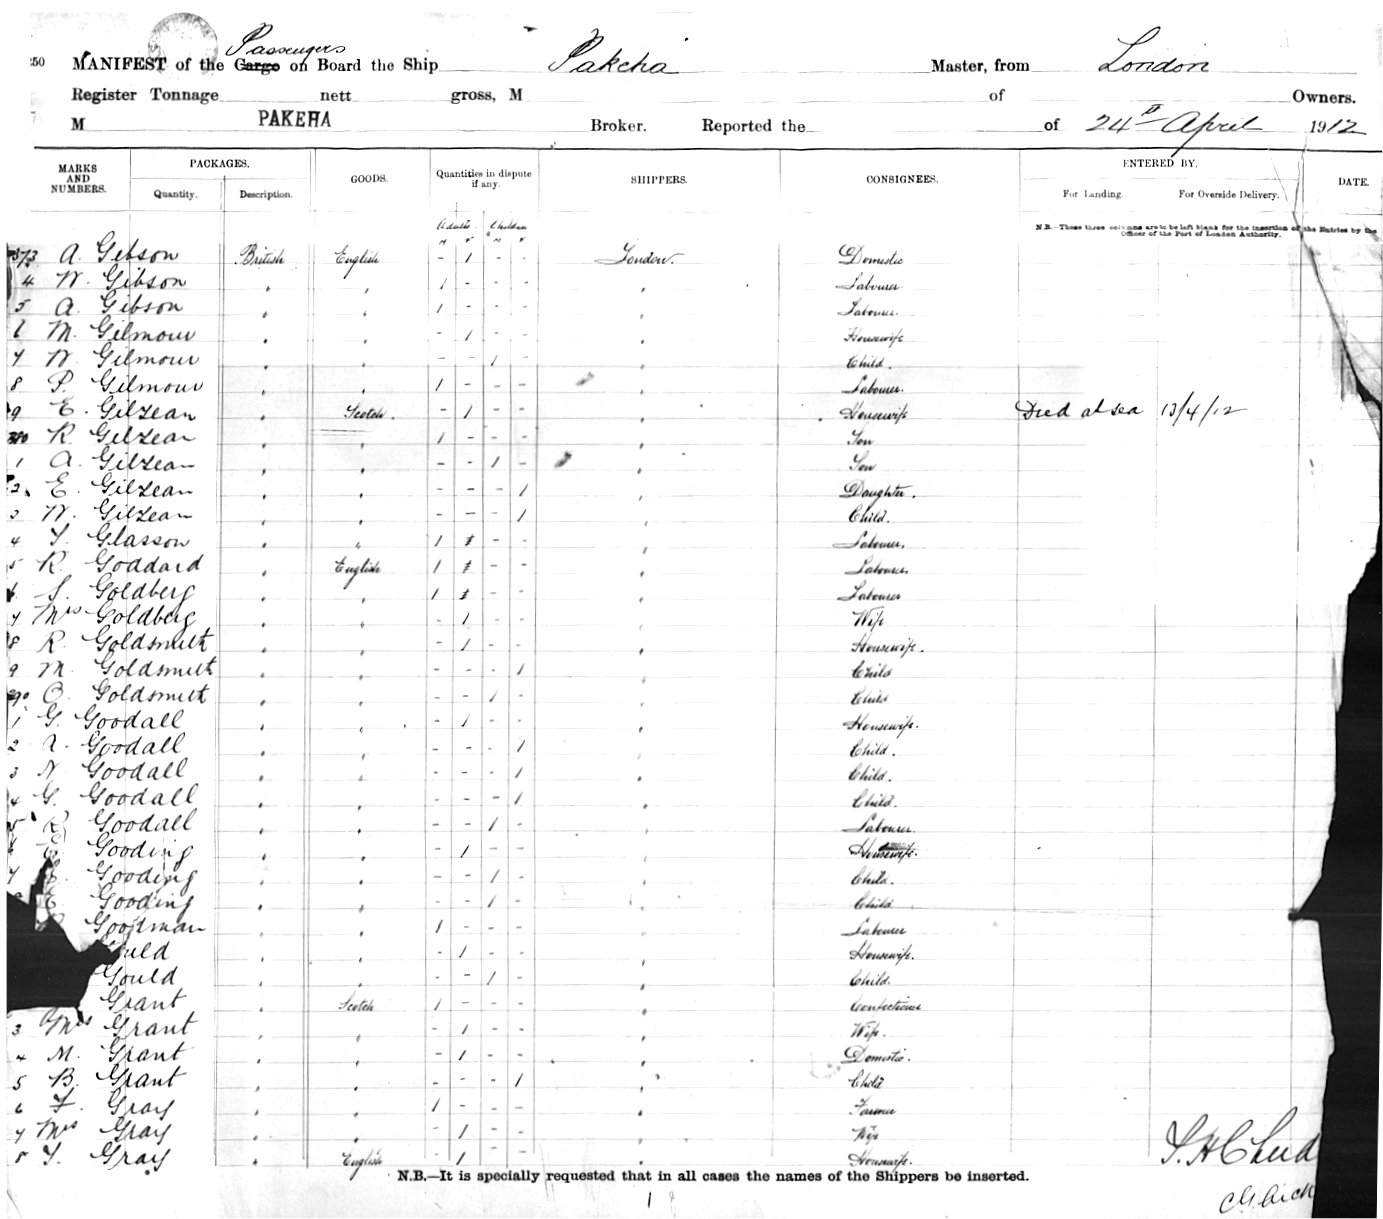 Passengers
250 MANIFEST of the Cargo on Board the Ship Pakeha Master, from London
Register Tonnage nett gross, M of Owners.
M PAKEHA Broker. Reported the of 24th April 1912
MARKS AND NUMBERS. PACKAGES. GOODS. Quantities in dispute if any. SHIPPERS. CONSIGNEES. ENTERED BY. DATE.
Quantity. Description. For Landing. For Overside Delivery.
Adults Children
M F M F
N.B.—These three columns are to be left blank for the insertion of the Entries by the Officer of the Port of London Authority.
373 A. Gibson British English - 1 - - London. Domestic
4 W. Gibson " " 1 - - - " Labourer
5 A. Gibson " " 1 - - - " Labourer
6 M. Gilmour " " - 1 - - " Housewife
7 W. Gilmour " " - - 1 - " Child.
8 P. Gilmour " " 1 - - - " Labourer.
9 E. Gilzean " Scotch. - 1 - - " Housewife Died at sea 13/4/12
380 R. Gilzean " " 1 - - - " Son
1 A. Gilzean " " - - 1 - " Son
2 E. Gilzean " " - - - 1 " Daughter.
3 W. Gilzean " " - - - 1 " Child.
4 T. Glasson " " 1 - - " Labourer.
5 R. Goddard " English 1 - - " Labourer.
6 S. Goldberg " " 1 - - " Labourer
7 Mrs Goldberg " " - 1 - - " Wife
8 R. Goldsmith " " - 1 - - " Housewife.
9 M. Goldsmith " " - - - 1 " Child
390 O. Goldsmith " " - - 1 - " Child
1 G. Goodall " " - 1 - - " Housewife.
2 A. Goodall " " - - - 1 " Child.
3 N. Goodall " " - - - 1 " Child.
4 G. Goodall " " - - - 1 " Child.
5 R. Goodall " " - - 1 - " Labourer.
E. Gooding " " - 1 - - " Housewife.
7 Gooding " " - - 1 - " Child.
Gooding " " - - 1 - " Child
Goodman " " 1 - - - " Labourer
uld " " - 1 - - " Housewife.
Gould " " - - 1 - " Child.
Grant " Scotch 1 - - - " Confectioner
3 Mrs Grant " " - 1 - - " Wife.
4 M. Grant " " - 1 - - " Domestic.
5 B. Grant " " - - - 1 " Child
6 F. Gray " " 1 - - - " Farmer
7 Mrs Gray " " - 1 - - " Wife
8 T. Gray " English - 1 - - " Housewife.
N.B.—It is specially requested that in all cases the names of the Shippers be inserted.